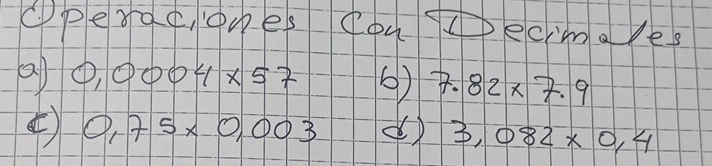 Operaciones Con Decimales
a) 0,0004 x 57 b) 7.82 x 7.9
c) 0,75 x 0,003 d) 3,082 x 0,4